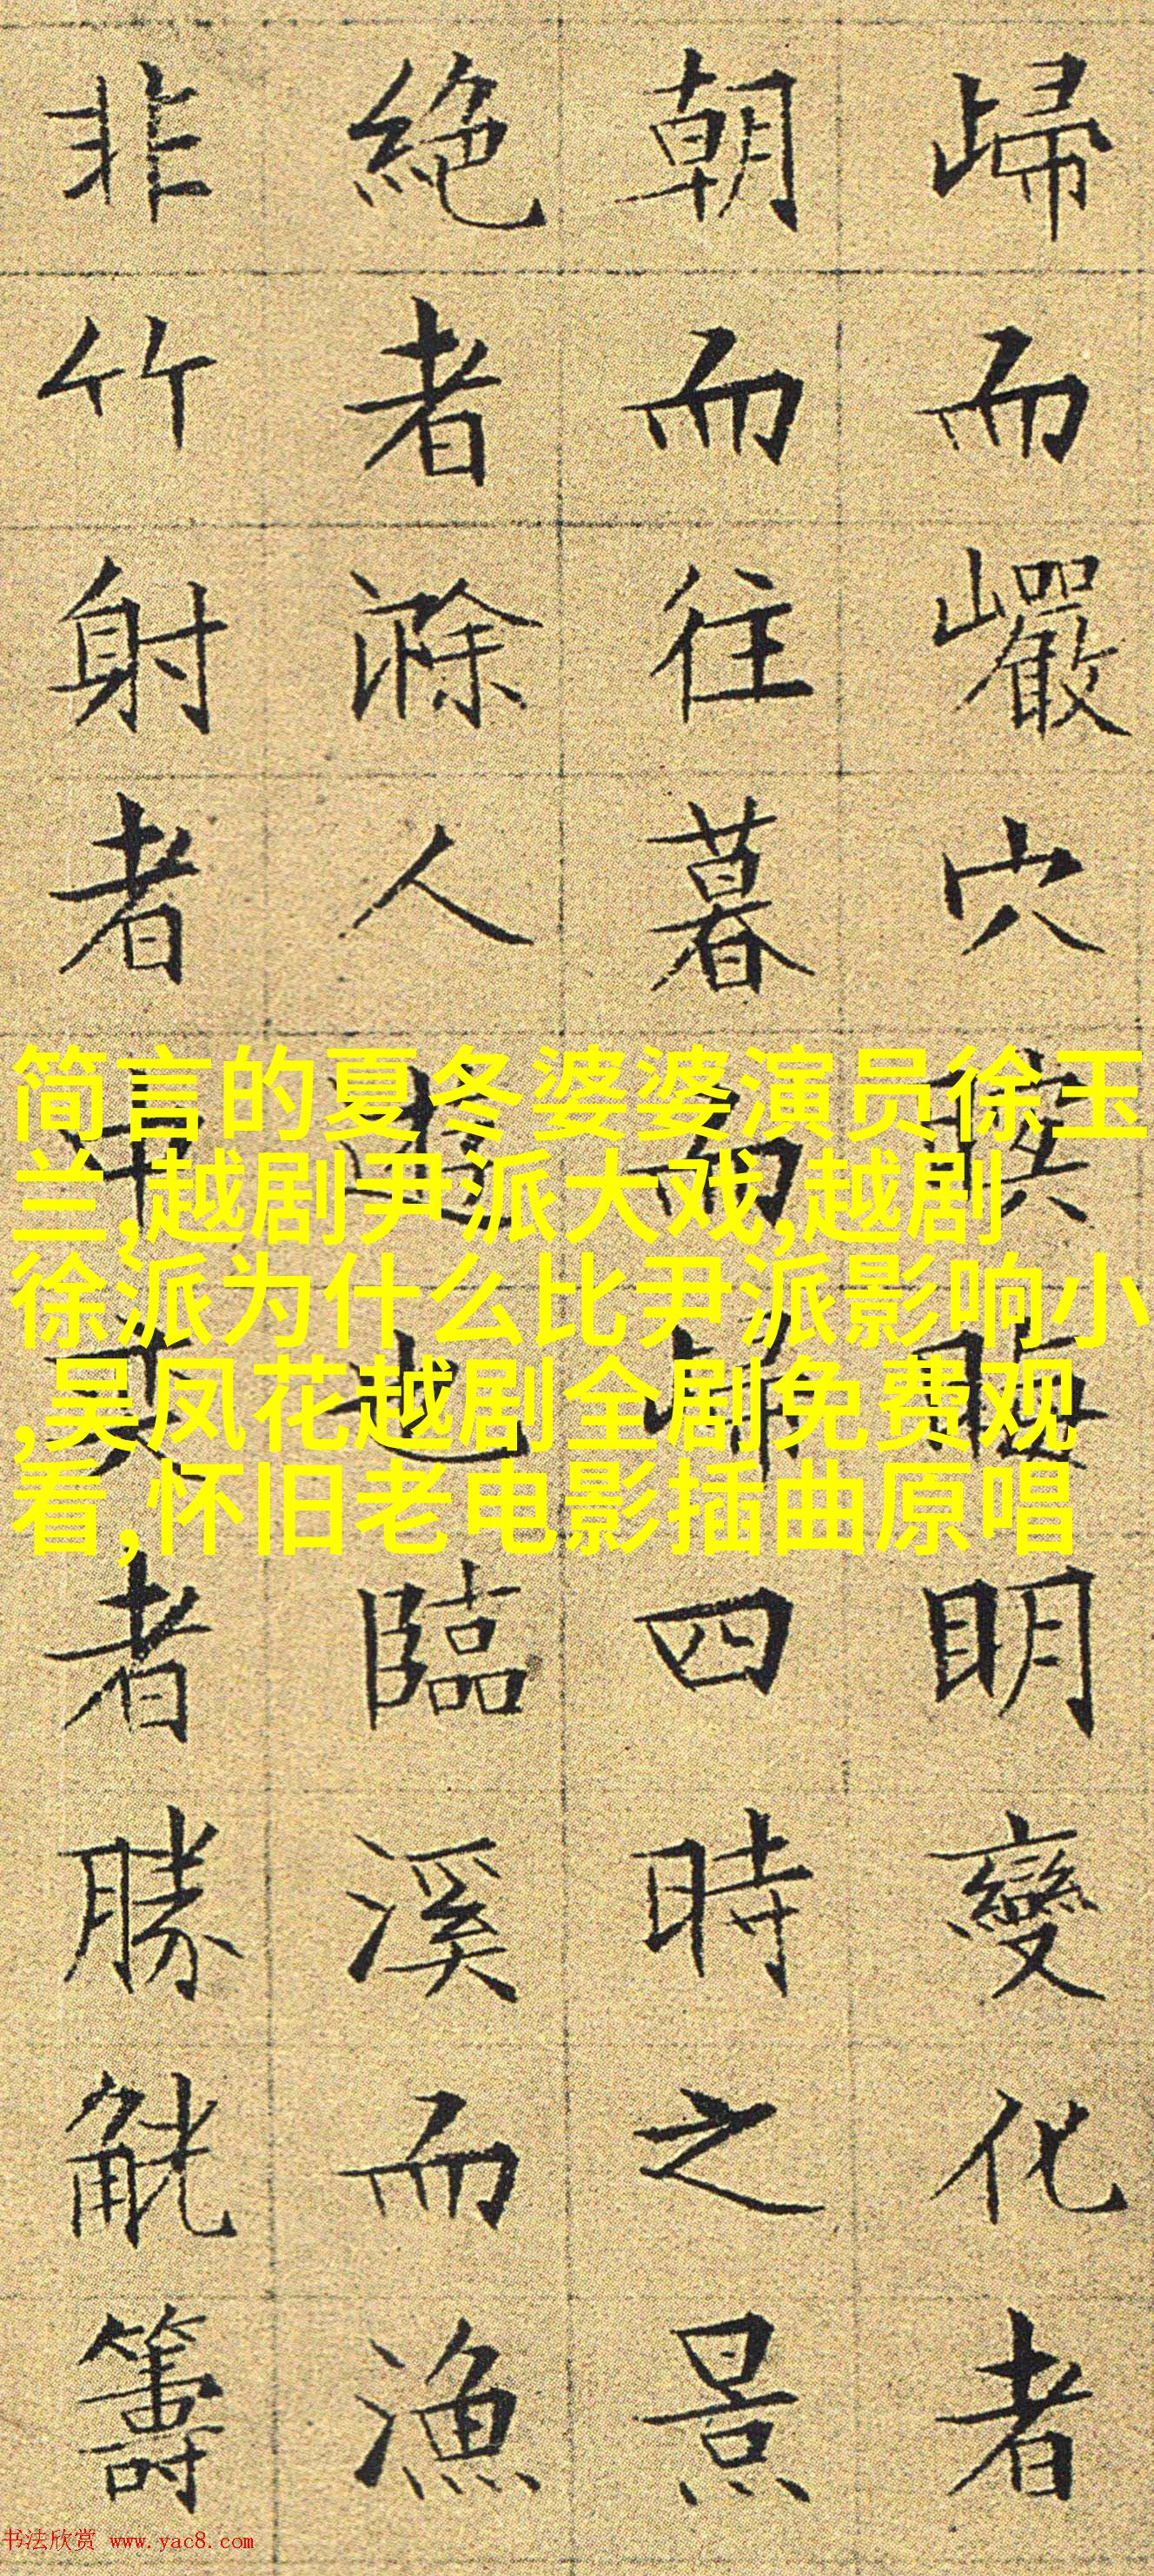 歸而巖穴暝晦明變化者
朝而往暮而歸四時之景
絕者滁人遊也臨溪而漁
非竹射者中弈者勝觥籌
简言的夏冬婆婆演员徐玉
兰,越剧尹派大戏,越剧
徐派为什么比尹派影响小
,吴凤花越剧全剧免费观
看,怀旧老电影插曲原唱
书法欣赏 www.yac8.com